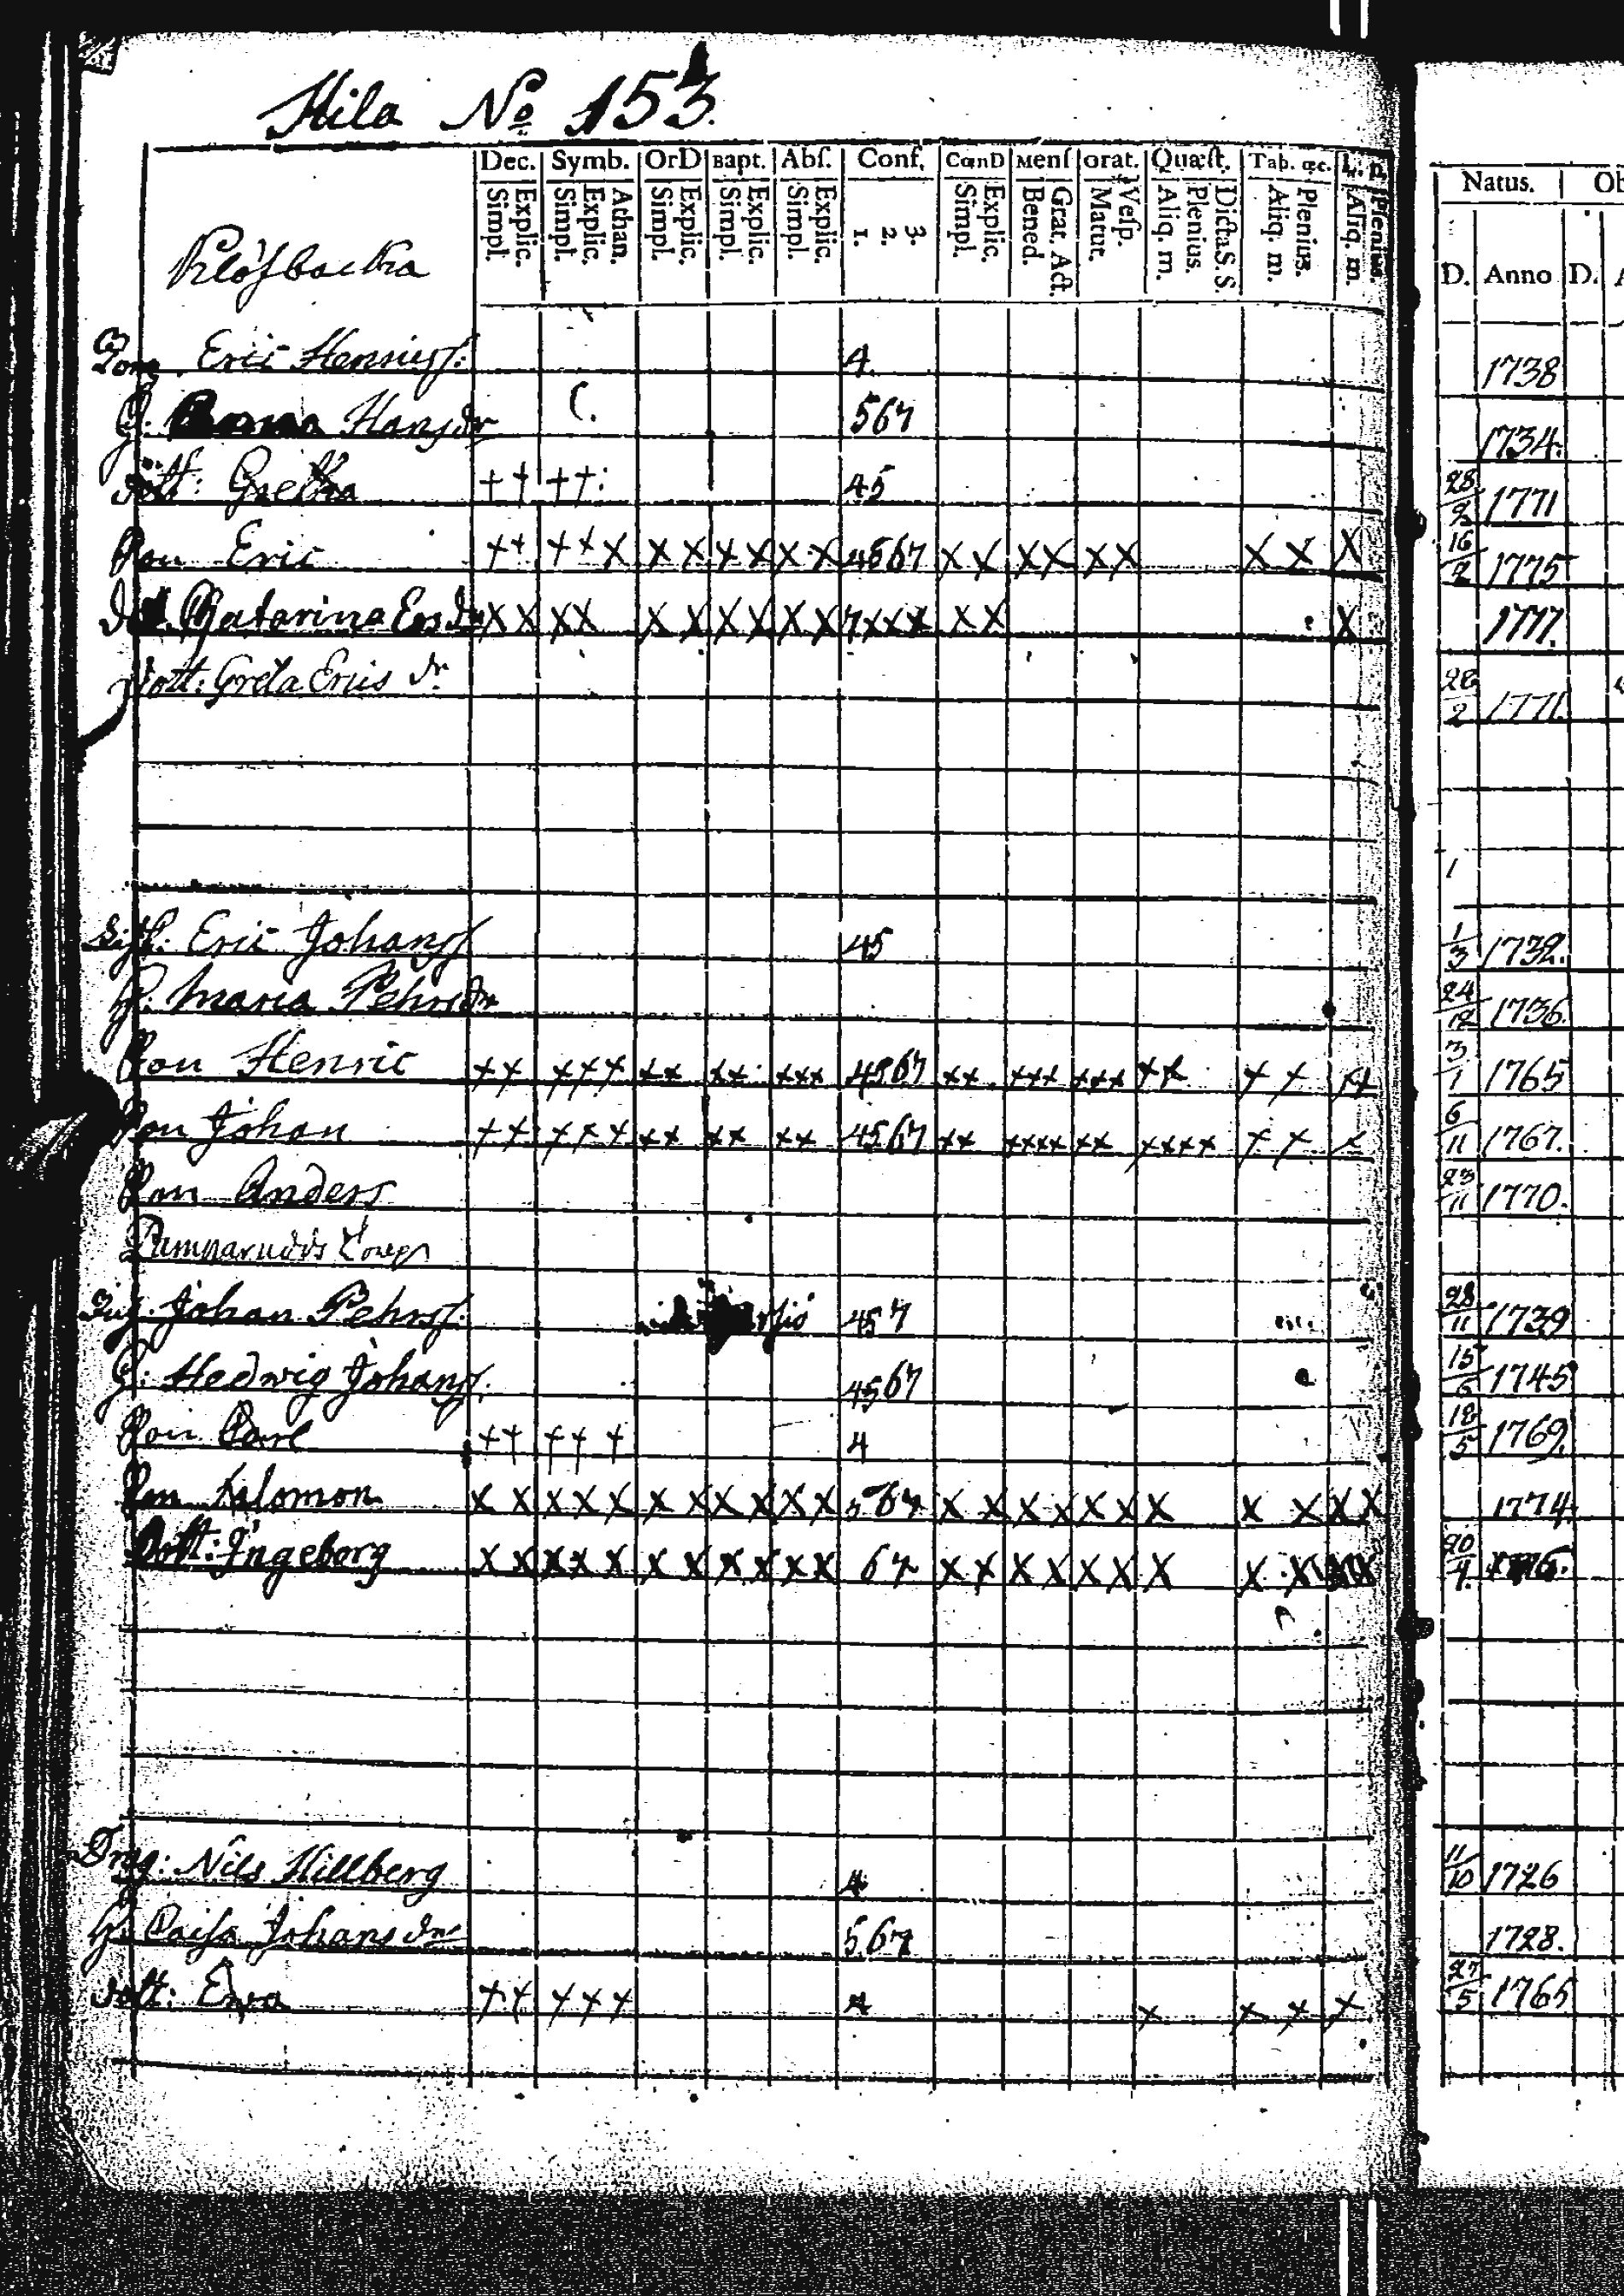 Hila No 153.
Dec. Symb. OrD Bapt. Abſ. Conf. CœnD Menſ Orat. Quæſt. Tab. œc. L. p. Natus.
Simpl. Explic. Simpl. Explic. Athan. Simpl. Explic. Simpl. Explic. Simpl. Explic. 1. 2. 3. Simpl. Explic. Bened. Grat. Act. Matut. Veſp. Aliq. m. Plenius. Dicta S. S. Aliq. m. Plenius. Aliq. m. Plenius. D. Anno D.
Eric Henricsſ: 4. 1738
H: Hansdr 567 1734.
dott: Gretha ++ ++: 45 28/2 1771
Son Eric ++ ++X XX XX XX 4567 XX XX XX XX X 16/2 1775
Chatarina Ersdr XX XX XX XX XX 7xxx XX X 1777.
dott: Greta Erics dr 28/2 1771.
Eric Johansſ 45 1/3 1732.
H: Maria Pehrsdr 24/12 1736.
Son Henric ++ +++ xx xx xxx 4567 xx xxx xxx xx ++ ++ 3/1 1765
Son Johan ++ +++ xx xx xx 4567 xx xxxx xx xxxx ++ + 6/11 1767.
Son Anders 23/11 1770.
Johan Pehrsſ: 457 28/11 1739
H: Hedwig Johansſ. 4567 15/6 1745
Son Carl ++ +++ 4 18/5 1769.
Son Salomon XX XXX XX XX XX 567 XX XX XX X XX XX 1774.
Dott: Ingeborg XX XXX XX XX XX 67 XX XX XX X XX XX 20/4.
Drag: Nils Hillberg 4 11/10 1726
H. Caisa Johans dr 567 1728.
dott: Ewa ++ +++ 4 + ++ + 27/5 1765